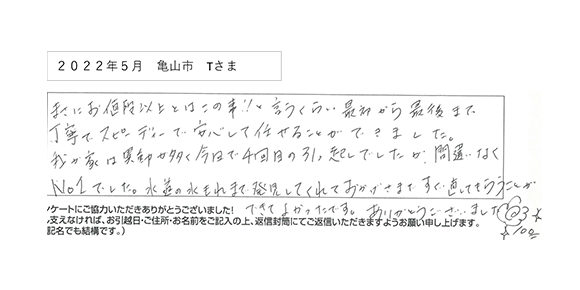 2022年5月　亀山市　Tさま
まさにお値段以上とはこの事!!と言うくらい最初から最後まで
丁寧でスピーディーで安心して任せることができました。
我が家は異動が多く今日で4回目の引っ越しでしたが、間違いなく
No1でした。水道の水もれまで発見してくれておかげさますぐ直してもらうことが
できてよかったです。ありがとうございました
ケートにご協力いただきありがとうございました!
支えなければ、お引越日・ご住所・お名前をご記入の上、返信封筒にてご返信いただきますようお願い申し上げます。
記名でも結構です。)